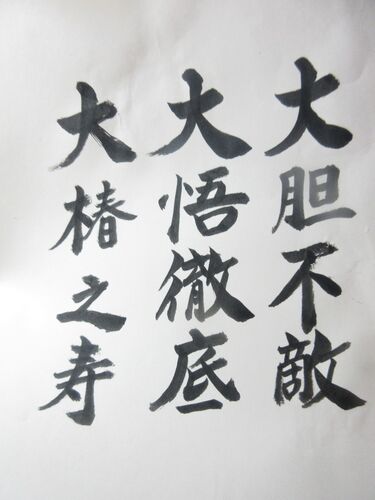 大胆不敵
大悟徹底
大椿之寿